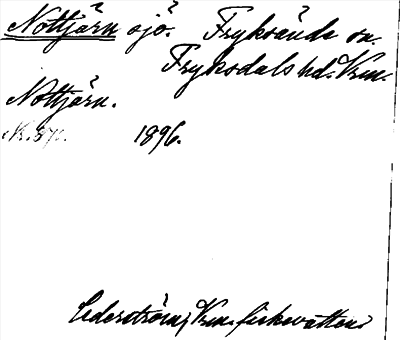 Nottjärn sjö. Fryksände sn.
Fryksdals hd. Vrm.
Nottjärn.
1896.
Cederström, Vrm. fiskevatten